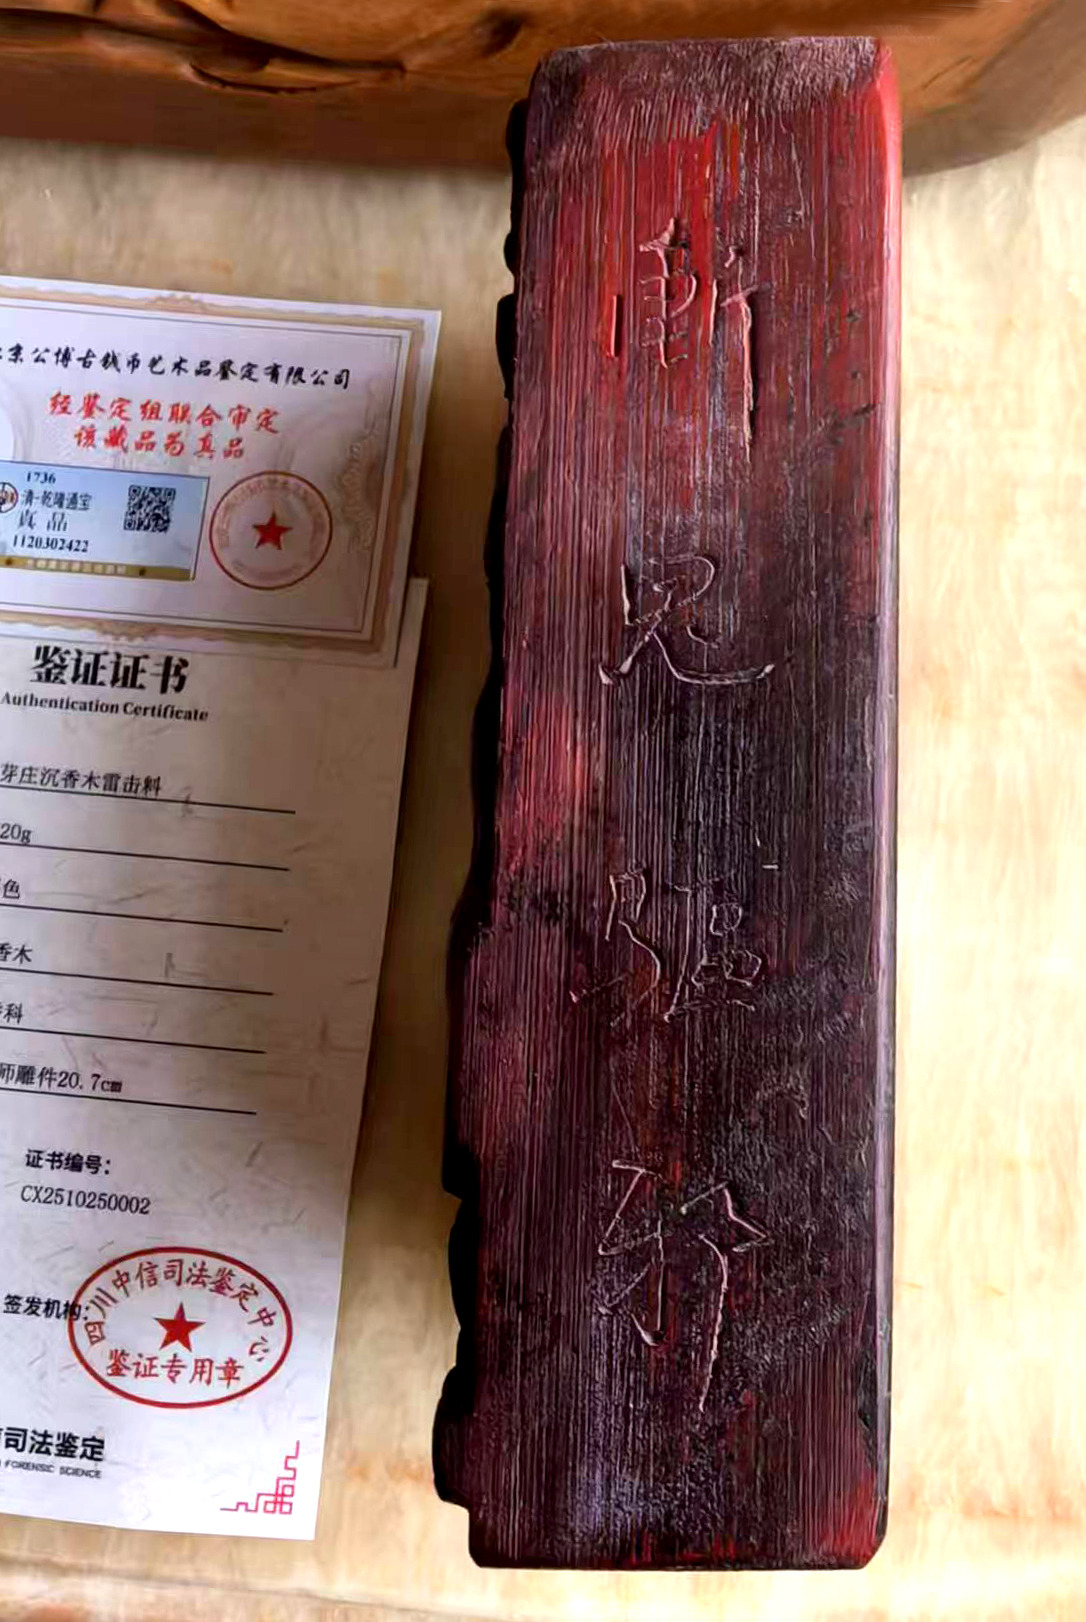 京公博古钱币艺术品鉴定有限公司
经鉴定组联合审定
该藏品为真品
1736
清-乾隆通宝
真品
1120302422
鉴证证书
Authentication Certificate
芽庄沉香木雷击料
20g
色
香木
料
师雕件20.7cm
证书编号:
CX2510250002
签发机构:
四川中信司法鉴定中心
鉴证专用章
司法鉴定
FORENSIC SCIENCE
斬